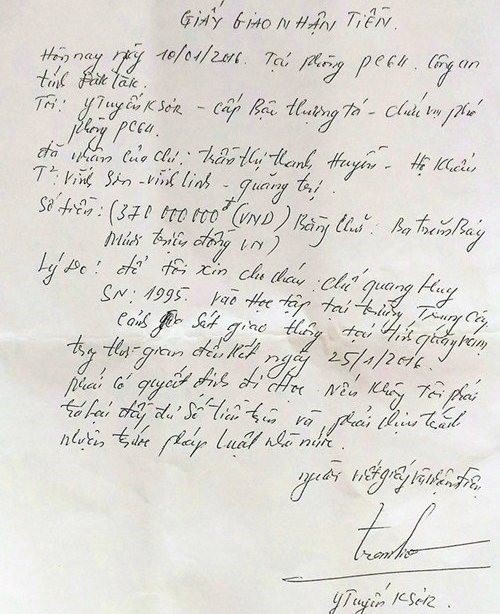 GIẤY GIAO NHẬN TIỀN.
Hôm nay ngày 10/01/2016. Tại phòng PC64. Công an
tỉnh Đắk Lắk.
Tôi: Y Tuyến KSơR - cấp Bậc thượng tá - chức vụ phó
phòng PC64.
đã nhận của chị: Trần thị thanh Huyền - Hộ Khẩu
T²: Vĩnh Sơn - vĩnh linh - quảng trị.
Số tiền: (370 000 000đ (VND) Bằng chữ: Ba trăm Bảy
Mươi triệu đồng VN)
Lý do: để tôi xin cho cháu: chế quang Huy
SN: 1995. vào học tập tại trường Trung Cấp
Cảnh Sát giao thông tại
trong thời gian đến hết ngày 25/1/2016.
phải có quyết định đi học. Nếu không tôi phải
trả lại đầy đủ số tiền trên và phải chịu trách
nhiệm trước pháp luật nhà nước.
người viết giấy và nhận tiền
Y Tuyến KSơR.